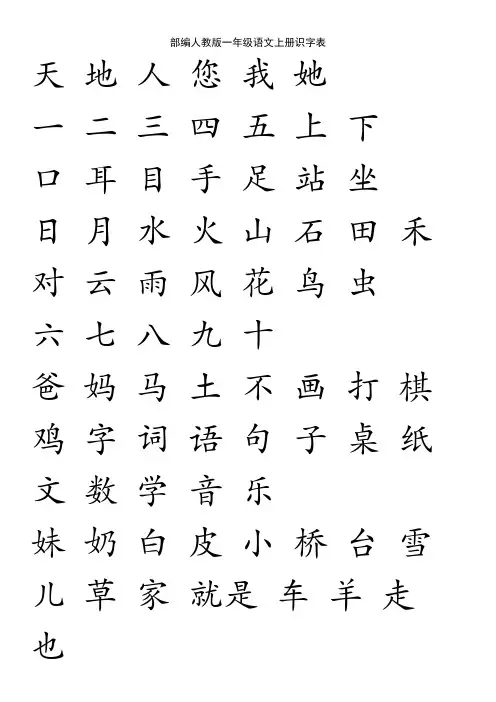 部编人教版一年级语文上册识字表
天 地 人 您 我 她
一 二 三 四 五 上 下
口 耳 目 手 足 站 坐
日 月 水 火 山 石 田 禾
对 云 雨 风 花 鸟 虫
六 七 八 九 十
爸 妈 马 土 不 画 打 棋
鸡 字 词 语 句 子 桌 纸
文 数 学 音 乐
妹 奶 白 皮 小 桥 台 雪
儿 草 家 就是 车 羊 走
也